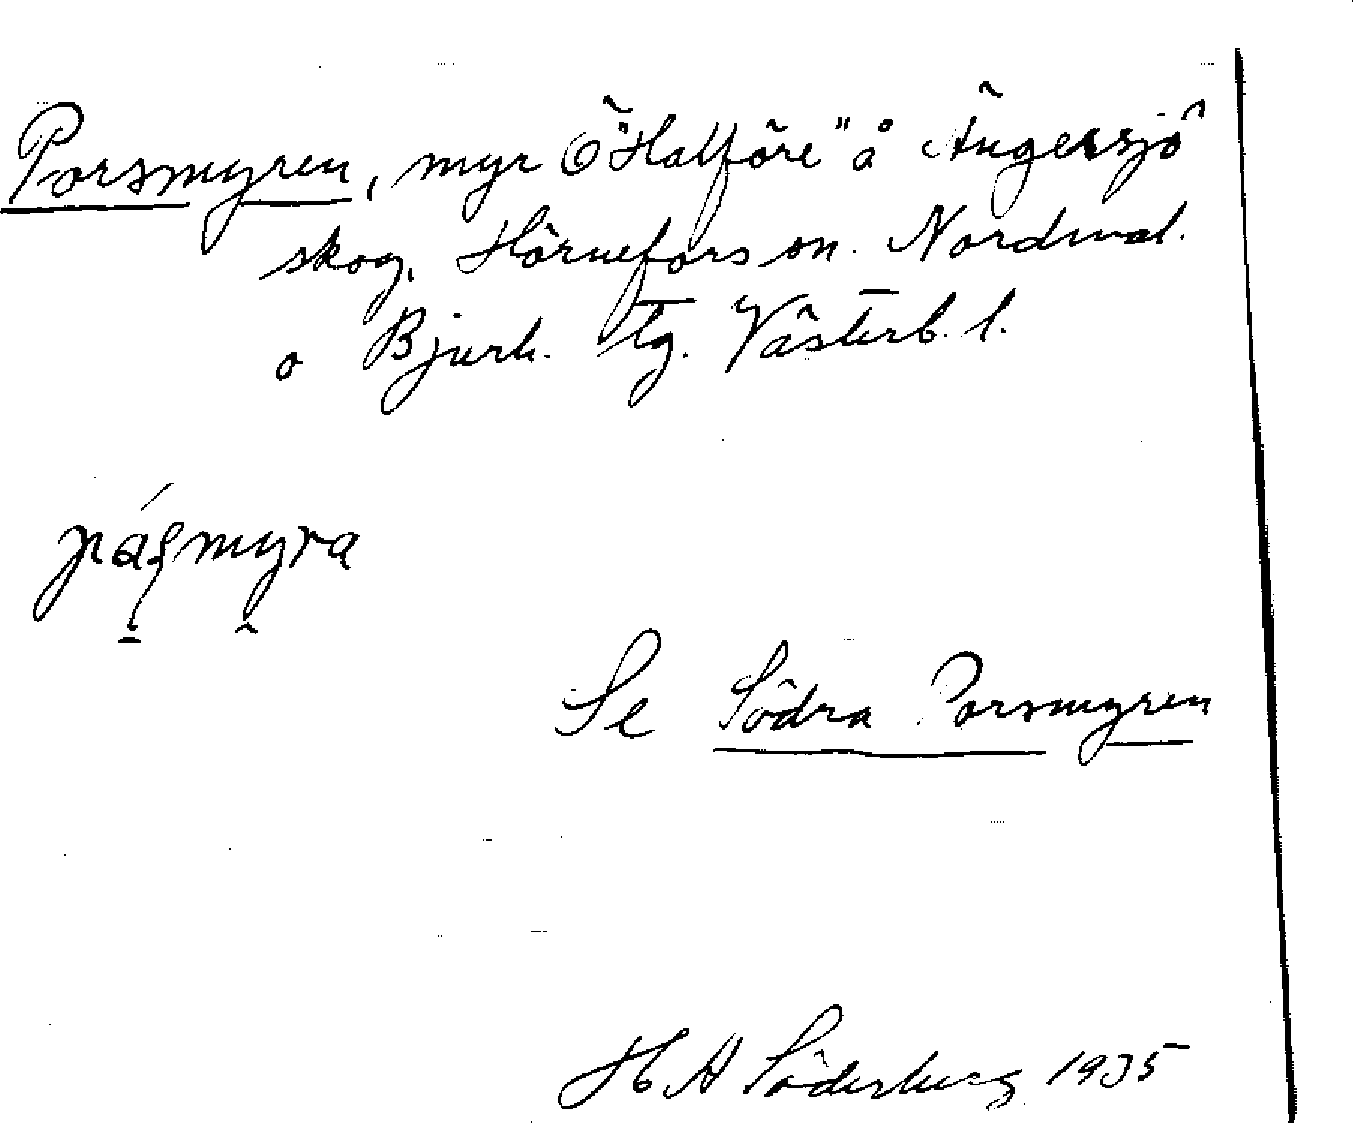 Porsmyren, myr Ö "Halföre" å Ängersjö
skog, Hörnefors sn. Nordmal.
o Bjurh. tg. Västerb. l.
påʂmyra
Se Södra Porsmyren
H A Söderberg 1935